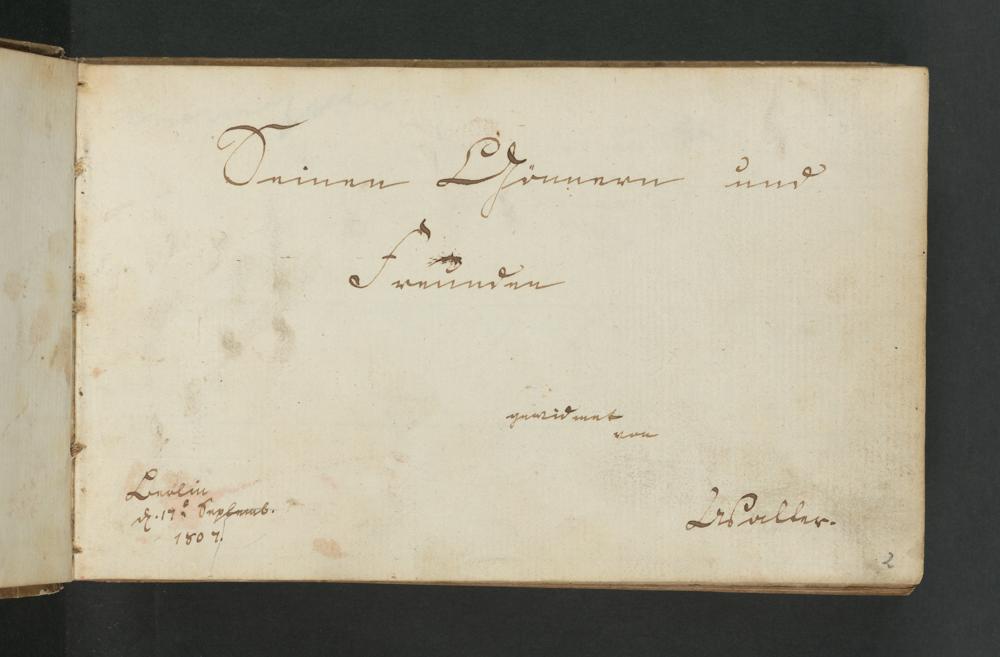 Seinen Gönnern und
Freunden
gewidmet
von
Berlin
d. 17t Septemb.
1807.
Walter.
2